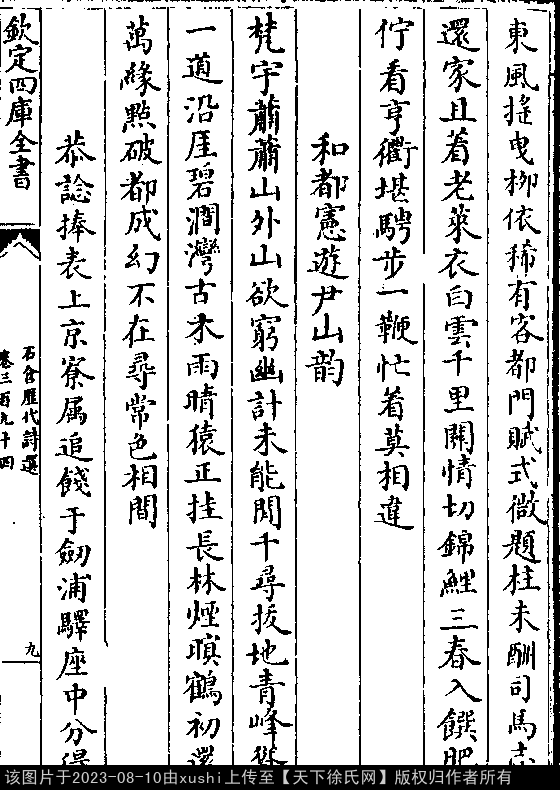 東風搖曳栁依稀有客都門賦式微題柱未酬司馬志
還家且着老萊衣白雲千里闗情切錦鯉三春入饌肥
佇看亨衢堪騁步一鞭忙着莫相違
和都憲遊尹山韵
梵宇蕭蕭山外山欲窮幽計未能閒千尋拔地青峰
一道沿厓碧澗灣古木雨晴猿正挂長林烟暝鶴初還
萬緣㸃破都成幻不在尋常色相間
恭諗捧表上京寮属追餞于劒浦驛座中分得
欽定四庫全書
石倉歷代詩選
卷三百九十四
九
该图片于2023-08-10由xushi上传至【天下徐氏网】版权归作者所有